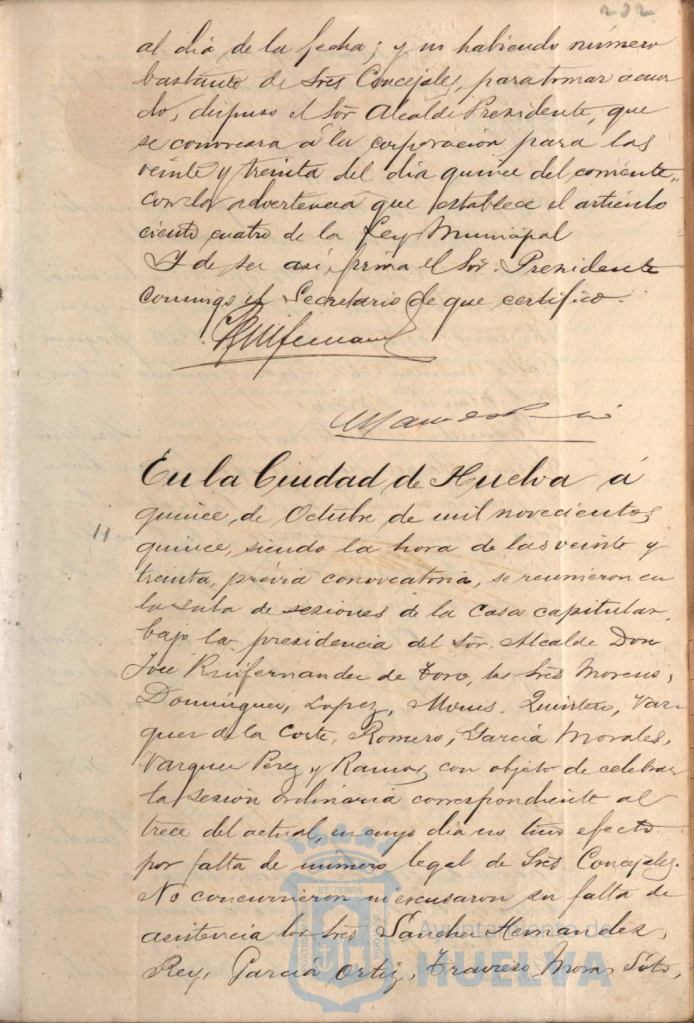 232
al dia de la fecha; y no habiendo número
bastante de Sres Concejales, para tomar acuer
do, dispuso el Sor Alcalde Presidente, que
se convocara á la corporación para las
veinte y treinta del dia quince del corriente,
con la advertencia que establece el artículo
ciento cuatro de la Ley Municipal
Y de ser así, firma el Sor. Presidente
conmigo el Secretario de que certifico.
En la Ciudad de Huelva á
11.
quince, de Octubre de mil novecientos
quince, siendo la hora de las veinte y
treinta, prévia convocatoria, se reunieron en
la sala de sesiones de la Casa capitular,
bajo la presidencia del Sor. Alcalde Don
José Ruifernandez de Toro, los Sres Moreno,
Domínguez, Lopez, Monis, Quintero, Vaz
quez de la Corte, Romero, García Morales,
Vazquez Perez y Ramos, con objeto de celebrar
la sesión ordinaria correspondiente al
trece del actual, en cuyo dia no tuvo efecto
por falta de número legal de Sres Concejales.
No concurrieron ni escusaron su falta de
asistencia los Sres Sánchez Hernandez,
Rey, García Ortiz, Travieso, Mora, Soto,
Ayuntamiento de
HUELVA